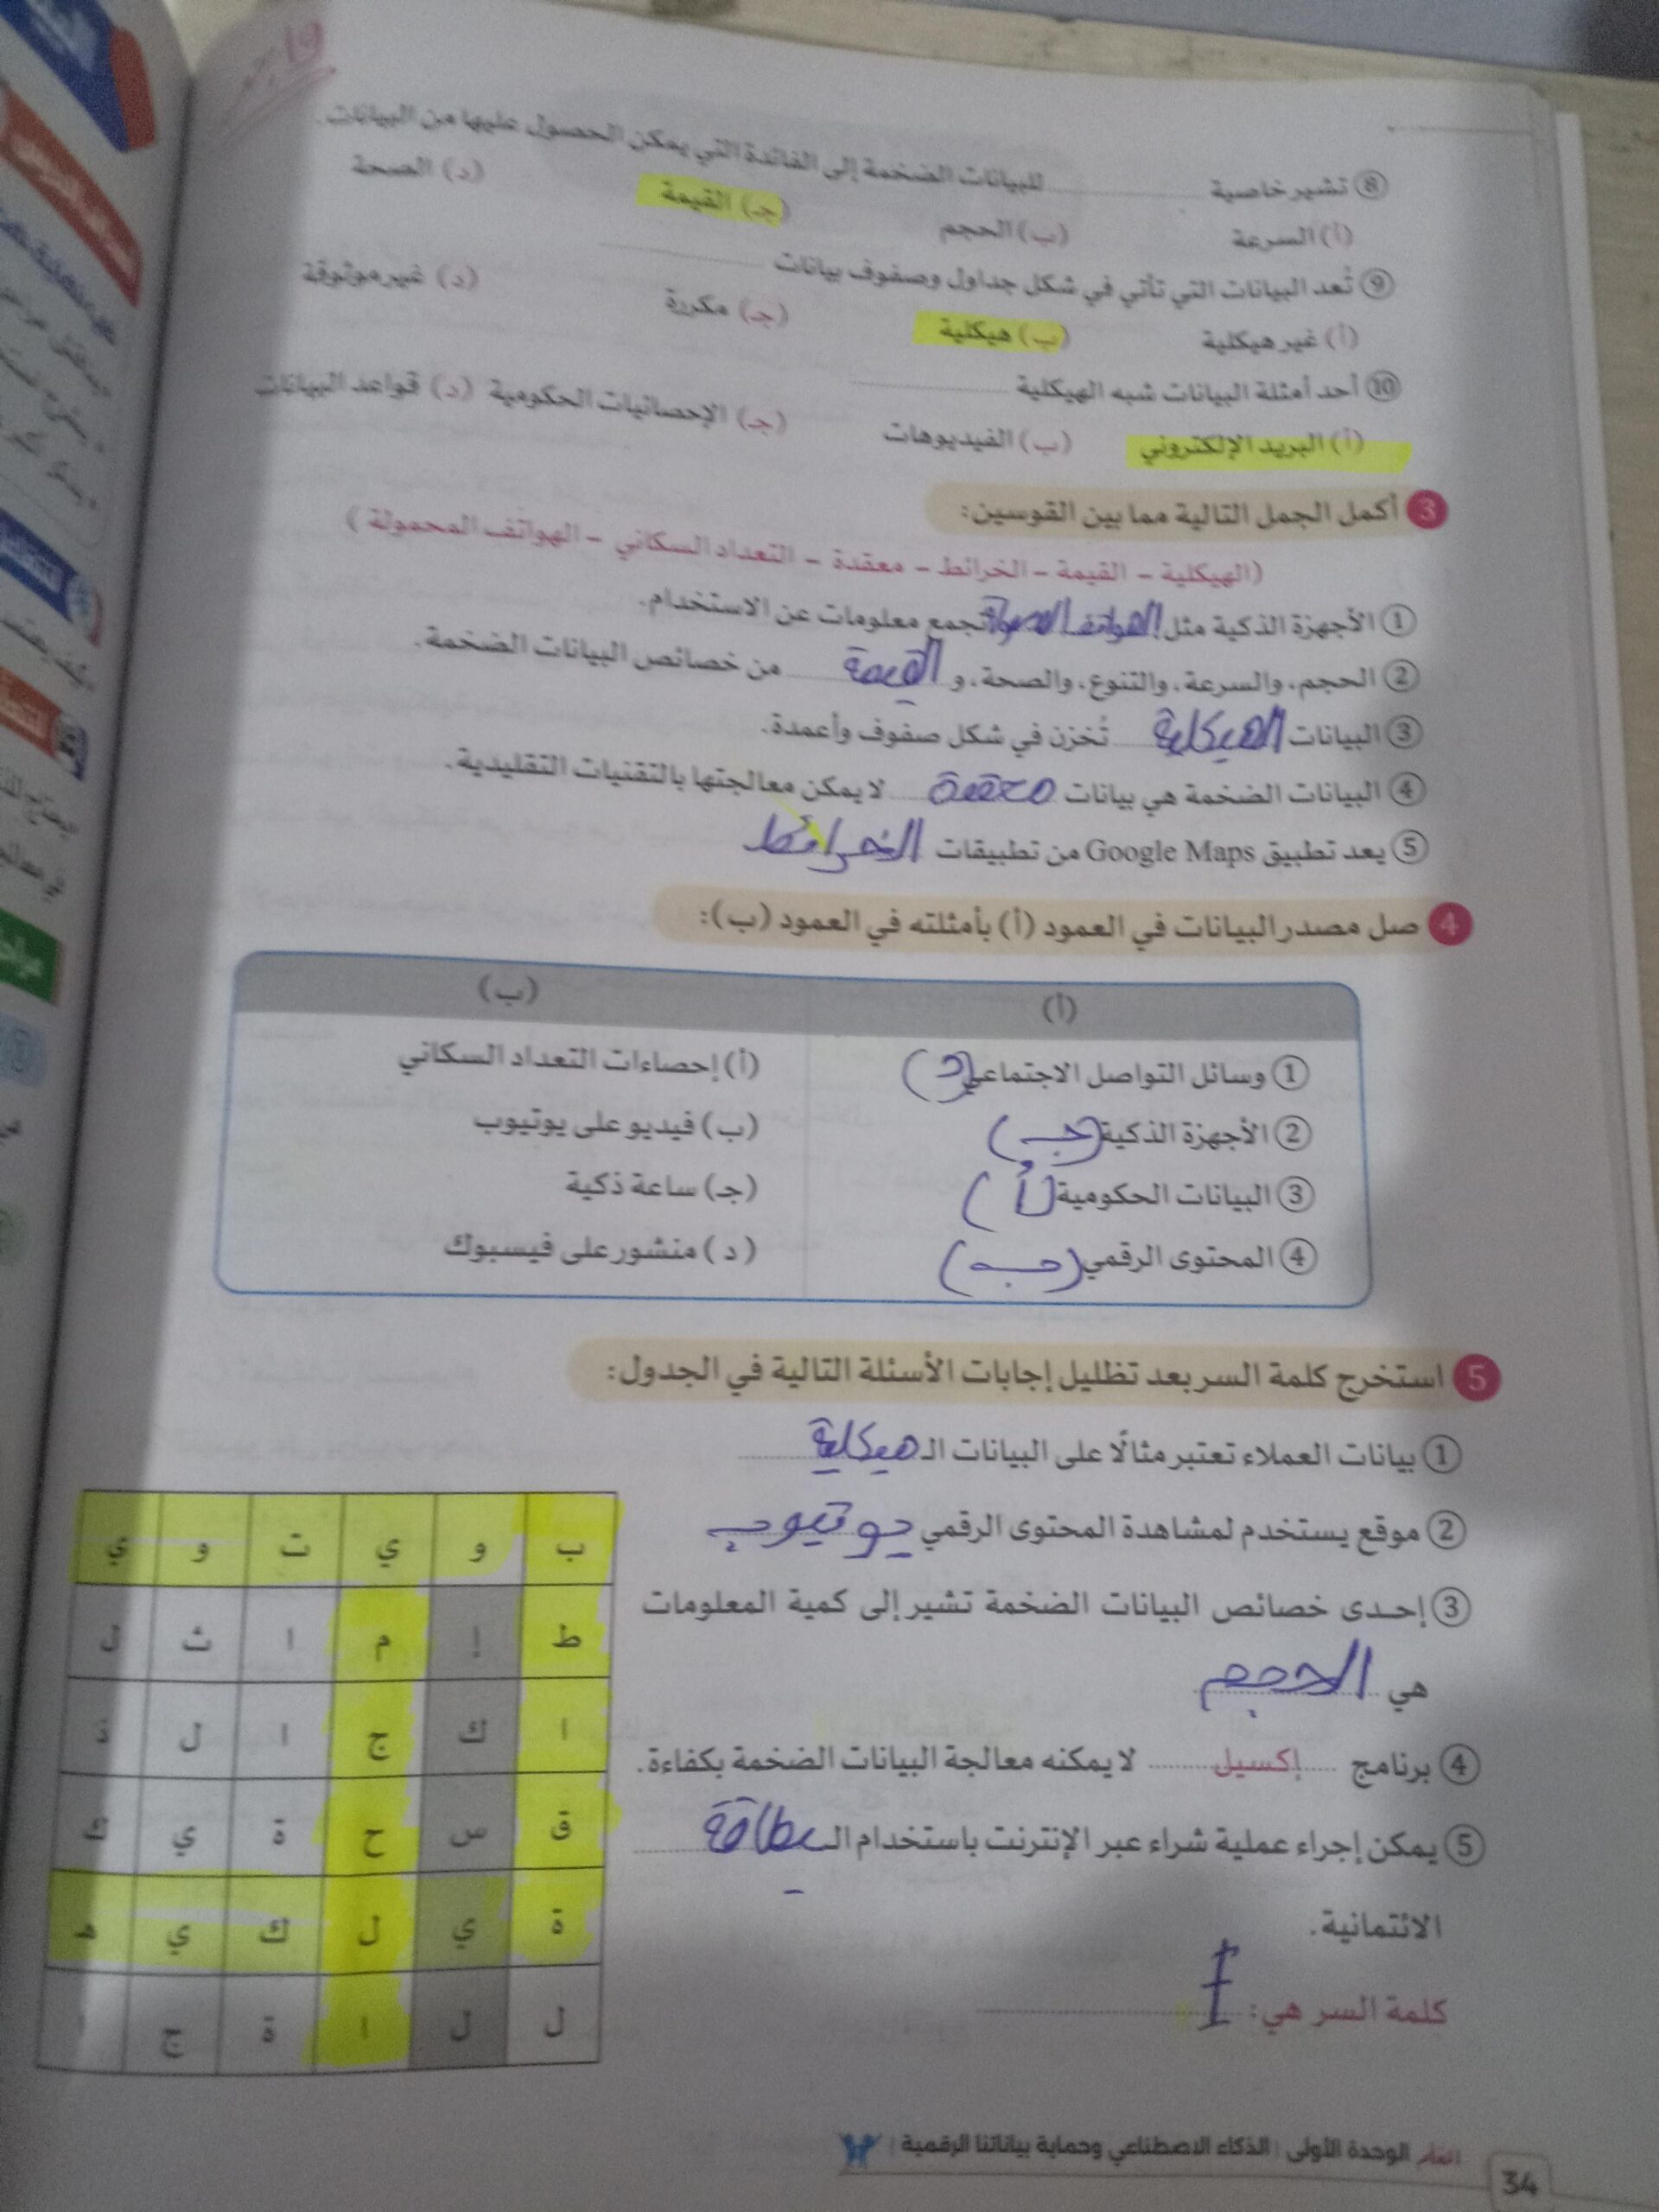 ⑧ تشير خاصية ........ للبيانات الضخمة إلى الفائدة التي يمكن الحصول عليها من البيانات.
(أ) السرعة (ب) الحجم (جـ) القيمة (د) الصحة
⑨ تُعد البيانات التي تأتي في شكل جداول وصفوف بيانات ........
(أ) غير هيكلية (ب) هيكلية (جـ) مكررة (د) غير موثوقة
⑩ أحد أمثلة البيانات شبه الهيكلية ........
(أ) البريد الإلكتروني (ب) الفيديوهات (جـ) الإحصائيات الحكومية (د) قواعد البيانات
3 أكمل الجمل التالية مما بين القوسين:
(الهيكلية – القيمة – الخرائط – معقدة – التعداد السكاني – الهواتف المحمولة)
① الأجهزة الذكية مثل الهواتف المحمولة تجمع معلومات عن الاستخدام.
② الحجم، والسرعة، والتنوع، والصحة، و القيمة من خصائص البيانات الضخمة.
③ البيانات الهيكلية تُخزن في شكل صفوف وأعمدة.
④ البيانات الضخمة هي بيانات معقدة لا يمكن معالجتها بالتقنيات التقليدية.
⑤ يعد تطبيق Google Maps من تطبيقات الخرائط
4 صل مصدر البيانات في العمود (أ) بأمثلته في العمود (ب):
(أ) (ب)
① وسائل التواصل الاجتماعي (د) (أ) إحصاءات التعداد السكاني
② الأجهزة الذكية (جـ) (ب) فيديو على يوتيوب
③ البيانات الحكومية (أ) (جـ) ساعة ذكية
④ المحتوى الرقمي (جـ) (د) منشور على فيسبوك
5 استخرج كلمة السر بعد تظليل إجابات الأسئلة التالية في الجدول:
① بيانات العملاء تعتبر مثالًا على البيانات الـ هيكلية
② موقع يستخدم لمشاهدة المحتوى الرقمي يوتيوب
③ إحدى خصائص البيانات الضخمة تشير إلى كمية المعلومات
هي الحجم
④ برنامج إكسيل لا يمكنه معالجة البيانات الضخمة بكفاءة.
⑤ يمكن إجراء عملية شراء عبر الإنترنت باستخدام الـ بطاقة
الائتمانية.
كلمة السر هي:
ب و ي ت و ي
ط إ م ا ث
ا ك ج ا ل
ق س ح ة ي
ة ي ل ك ي هـ
ل ل ا ة ج
الوحدة الأولى | الذكاء الاصطناعي وحماية بياناتنا الرقمية
34